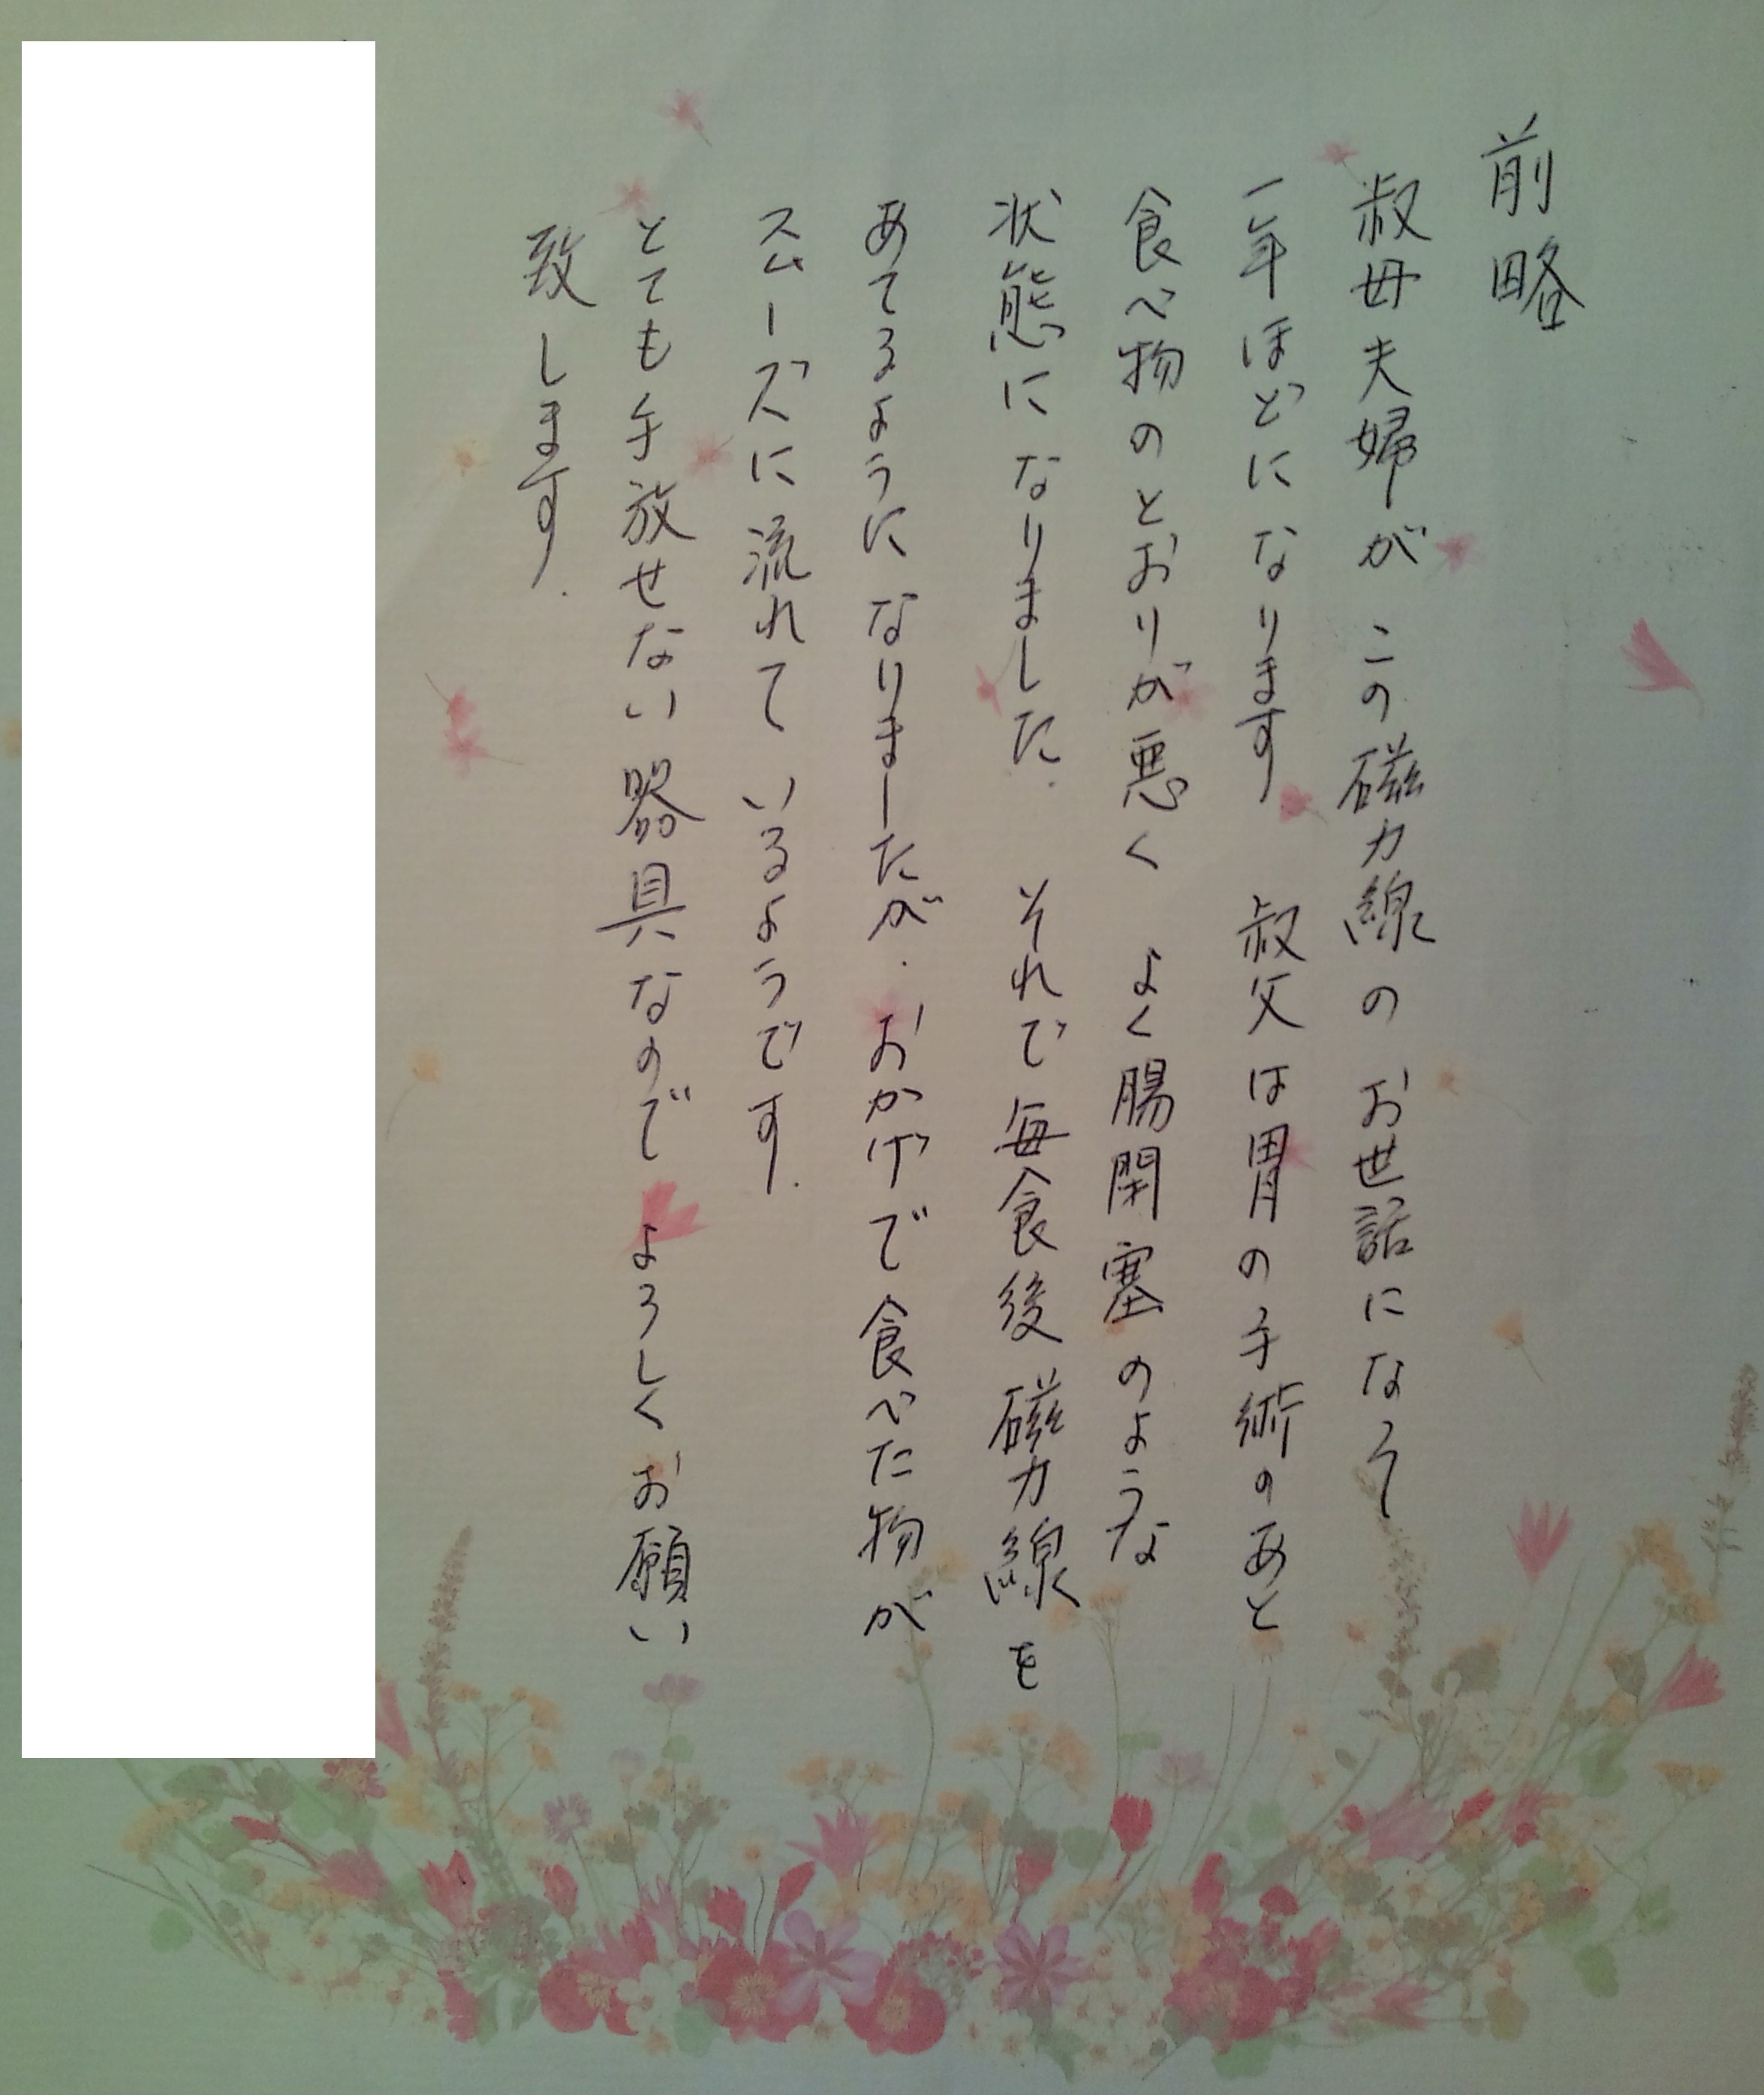 前略
叔母夫婦が この磁力線の お世話になって
一年ほどになります 叔父は胃の手術のあと
食べ物のとおりが悪く よく腸閉塞のような
状態になりました. それで毎食後磁力線を
あてるようになりましたが. おかげで食べた物が
スムーズに流れて いるようです.
とても手放せない器具なので よろしくお願い
致します.